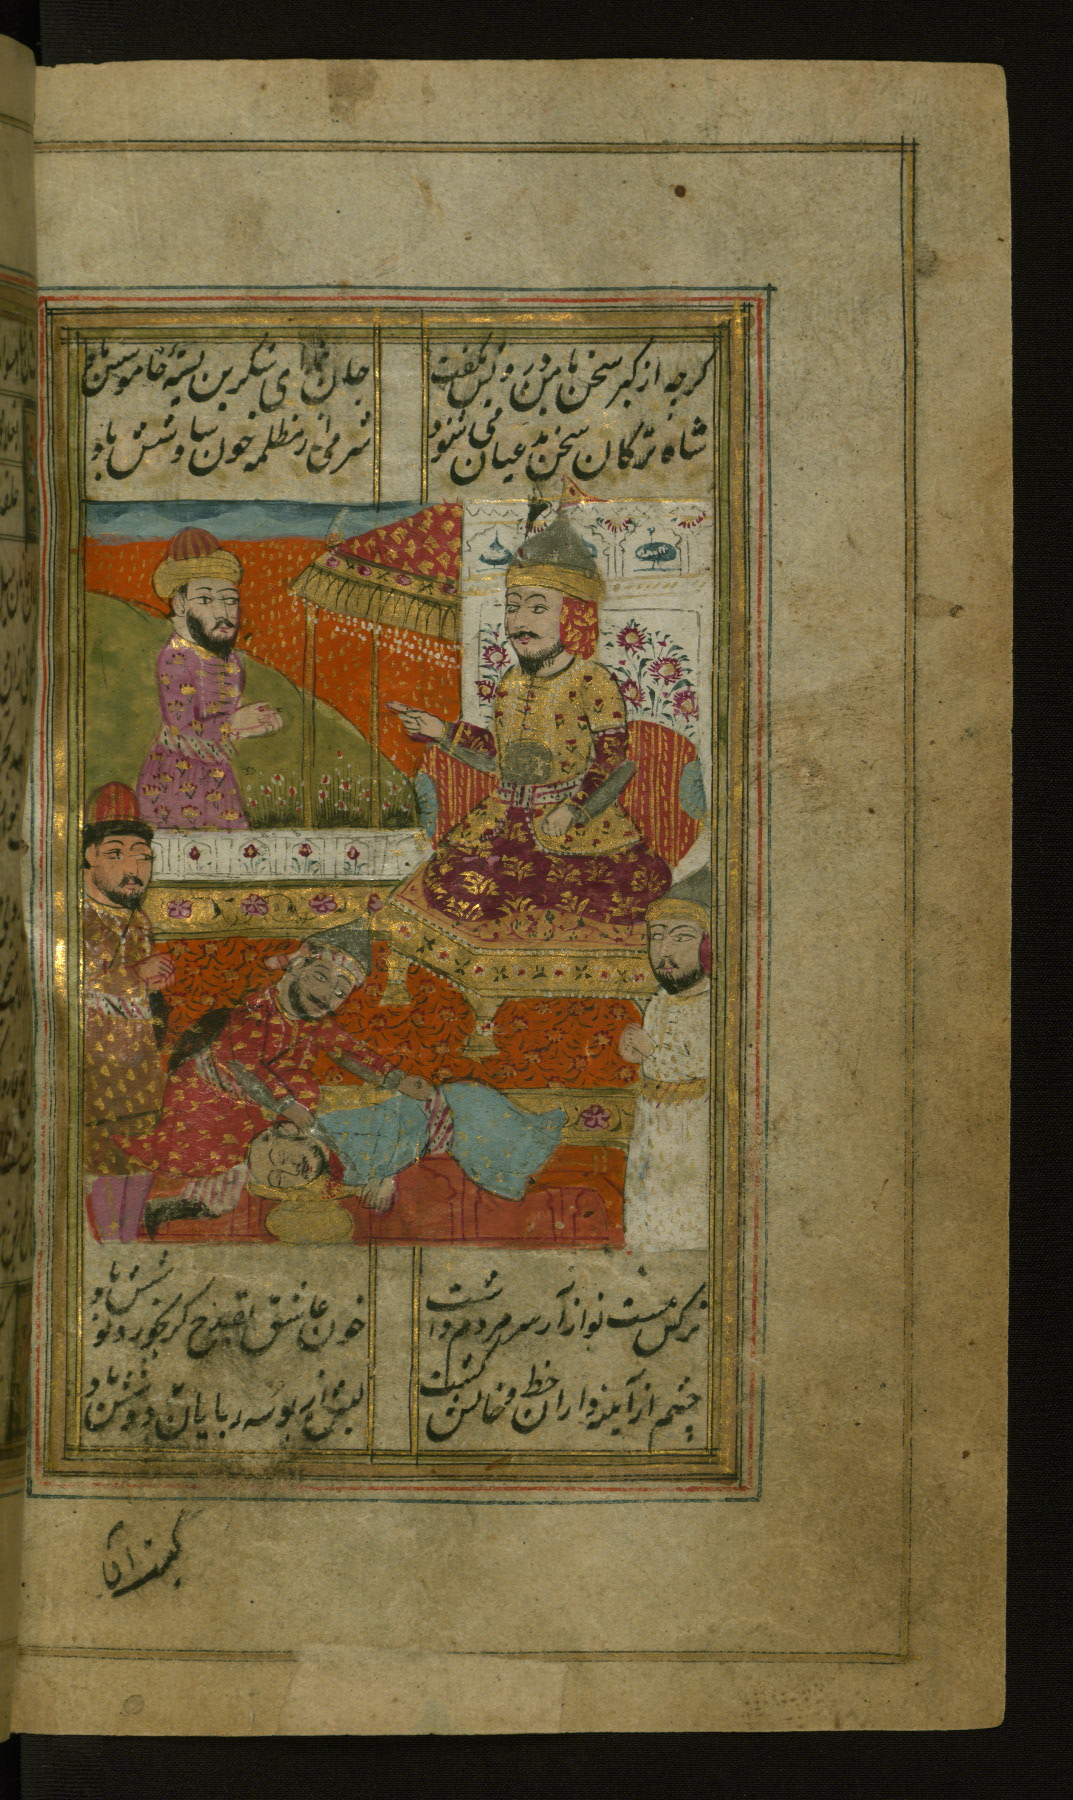 گرچه از کبر سخن با من درویش نگفت
جان فدای شکرین پسته خاموشش باد
شاه ترکان سخن مدعیان می شنود
شرمی از مظلمه خون سیاوشش باد
نرگس مست نوازش مردم دارش
خون عاشق بقدح گر بخورد نوشش باد
چشم از آینه داران خط و خالش گشت
لبش از بوسه ربایان دوشش باد